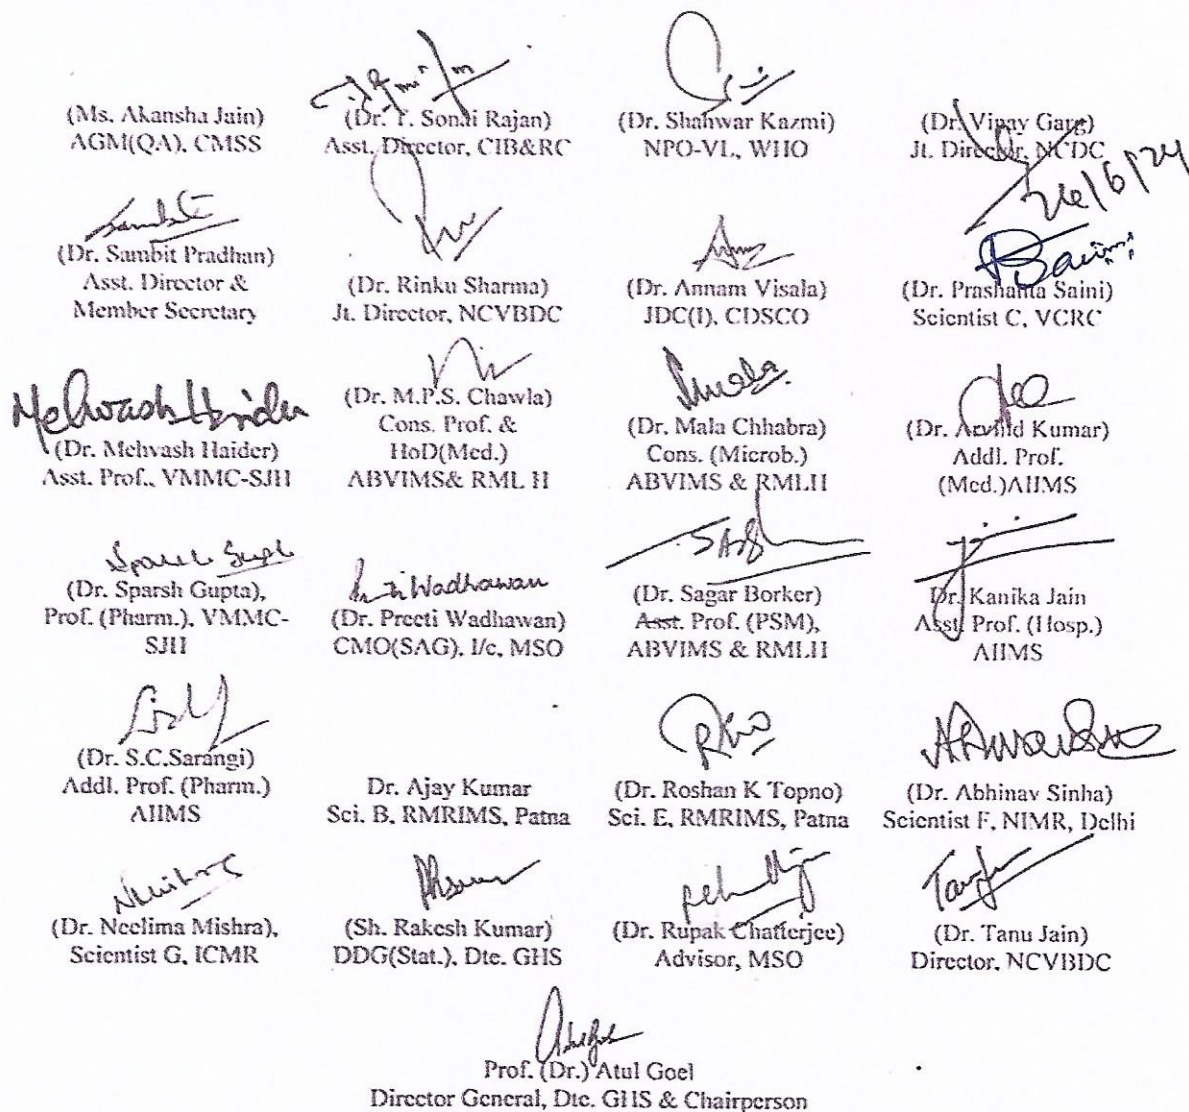 (Ms. Akansha Jain)
AGM(QA), CMSS
(Dr. T. Sonai Rajan)
Asst. Director, CIB&RC
(Dr. Shahwar Kazmi)
NPO-VL, WHO
(Dr. Vinay Garg)
Jt. Director, NCDC
26/6/24
(Dr. Sambit Pradhan)
Asst. Director &
Member Secretary
(Dr. Rinku Sharma)
Jt. Director, NCVBDC
(Dr. Annam Visala)
JDC(I), CDSCO
(Dr. Prashanta Saini)
Scientist C, VCRC
Mehvash Haider
(Dr. Mehvash Haider)
Asst. Prof., VMMC-SJH
(Dr. M.P.S. Chawla)
Cons. Prof. &
HoD(Med.)
ABVIMS& RML H
(Dr. Mala Chhabra)
Cons. (Microb.)
ABVIMS & RMLH
(Dr. Arvind Kumar)
Addl. Prof.
(Med.)AIIMS
(Dr. Sparsh Gupta),
Prof. (Pharm.), VMMC-
SJH
Wadhawan
(Dr. Preeti Wadhawan)
CMO(SAG), I/c, MSO
(Dr. Sagar Borker)
Asst. Prof. (PSM),
ABVIMS & RMLH
Dr. Kanika Jain
Asst. Prof. (Hosp.)
AIIMS
(Dr. S.C.Sarangi)
Addl. Prof. (Pharm.)
AIIMS
Dr. Ajay Kumar
Sci. B, RMRIMS, Patna
(Dr. Roshan K Topno)
Sci. E, RMRIMS, Patna
(Dr. Abhinav Sinha)
Scientist F, NIMR, Delhi
(Dr. Neelima Mishra),
Scientist G, ICMR
(Sh. Rakesh Kumar)
DDG(Stat.), Dte. GHS
(Dr. Rupak Chatterjee)
Advisor, MSO
(Dr. Tanu Jain)
Director, NCVBDC
Prof. (Dr.) Atul Goel
Director General, Dte. GHS & Chairperson